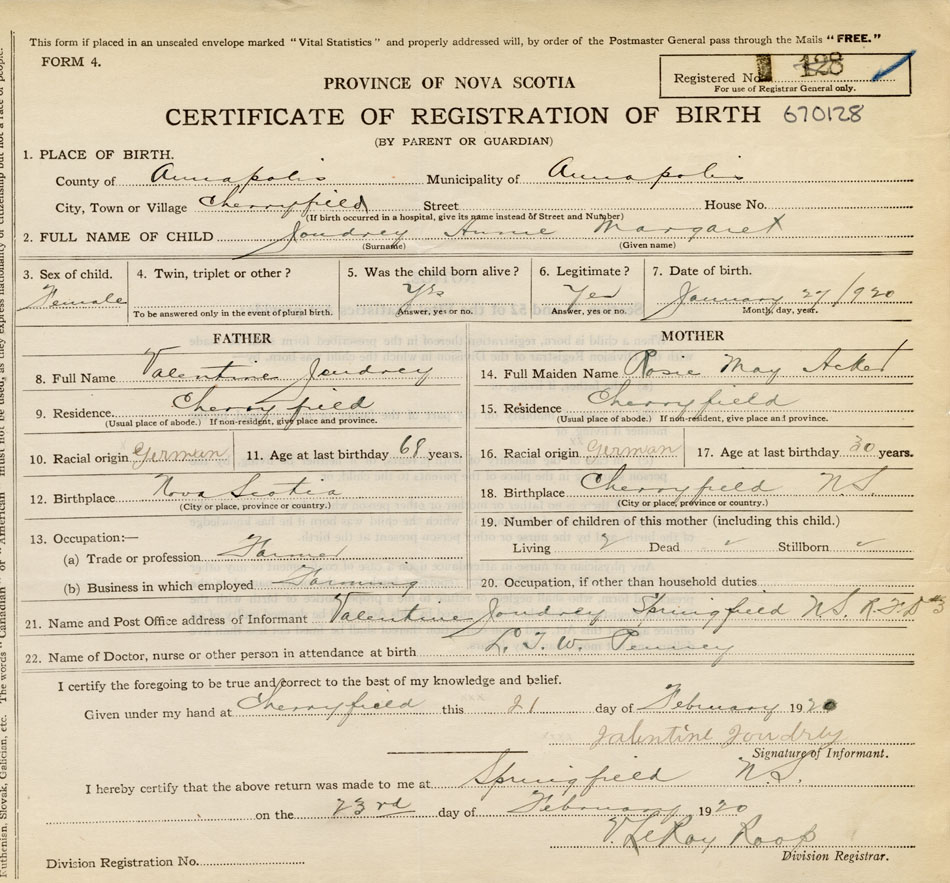 This form if placed in an unsealed envelope marked "Vital Statistics" and properly addressed will, by order of the Postmaster General pass through the Mails "FREE."
FORM 4.
PROVINCE OF NOVA SCOTIA
Registered No. 128
For use of Registrar General only.
CERTIFICATE OF REGISTRATION OF BIRTH 670128
(BY PARENT OR GUARDIAN)
1. PLACE OF BIRTH.
County of Annapolis Municipality of Annapolis
City, Town or Village Cherryfield Street House No.
(If birth occurred in a hospital, give its name instead of Street and Number)
2. FULL NAME OF CHILD Joudrey Annie Margaret
(Surname) (Given name)
3. Sex of child. 4. Twin, triplet or other? 5. Was the child born alive? 6. Legitimate? 7. Date of birth.
Female Yes Yes January 27/1920
To be answered only in the event of plural birth. Answer, yes or no. Answer, yes or no. Month, day, year.
FATHER MOTHER
8. Full Name Valentine Joudrey 14. Full Maiden Name Rosie May Acker
9. Residence. Cherryfield 15. Residence Cherryfield
(Usual place of abode.) If non-resident, give place and province. (Usual place of abode.) If non-resident, give place and province.
10. Racial origin German 11. Age at last birthday 68 years. 16. Racial origin German 17. Age at last birthday 30 years.
12. Birthplace Nova Scotia 18. Birthplace Cherryfield N.S.
(City or place, province or country.) (City or place, province or country.)
13. Occupation:— 19. Number of children of this mother (including this child.)
(a) Trade or profession Farmer Living 2 Dead Stillborn
(b) Business in which employed Farming 20. Occupation, if other than household duties
21. Name and Post Office address of Informant Valentine Joudrey Springfield N.S. R.F.D #3
22. Name of Doctor, nurse or other person in attendance at birth L. T. W. Penney
I certify the foregoing to be true and correct to the best of my knowledge and belief.
Given under my hand at Cherryfield this 21 day of February 1920
Valentine Joudrey
Signature of Informant.
I hereby certify that the above return was made to me at Springfield N.S.
on the 23rd day of February 1920
V. LeRoy Roop
Division Registrar.
Division Registration No.